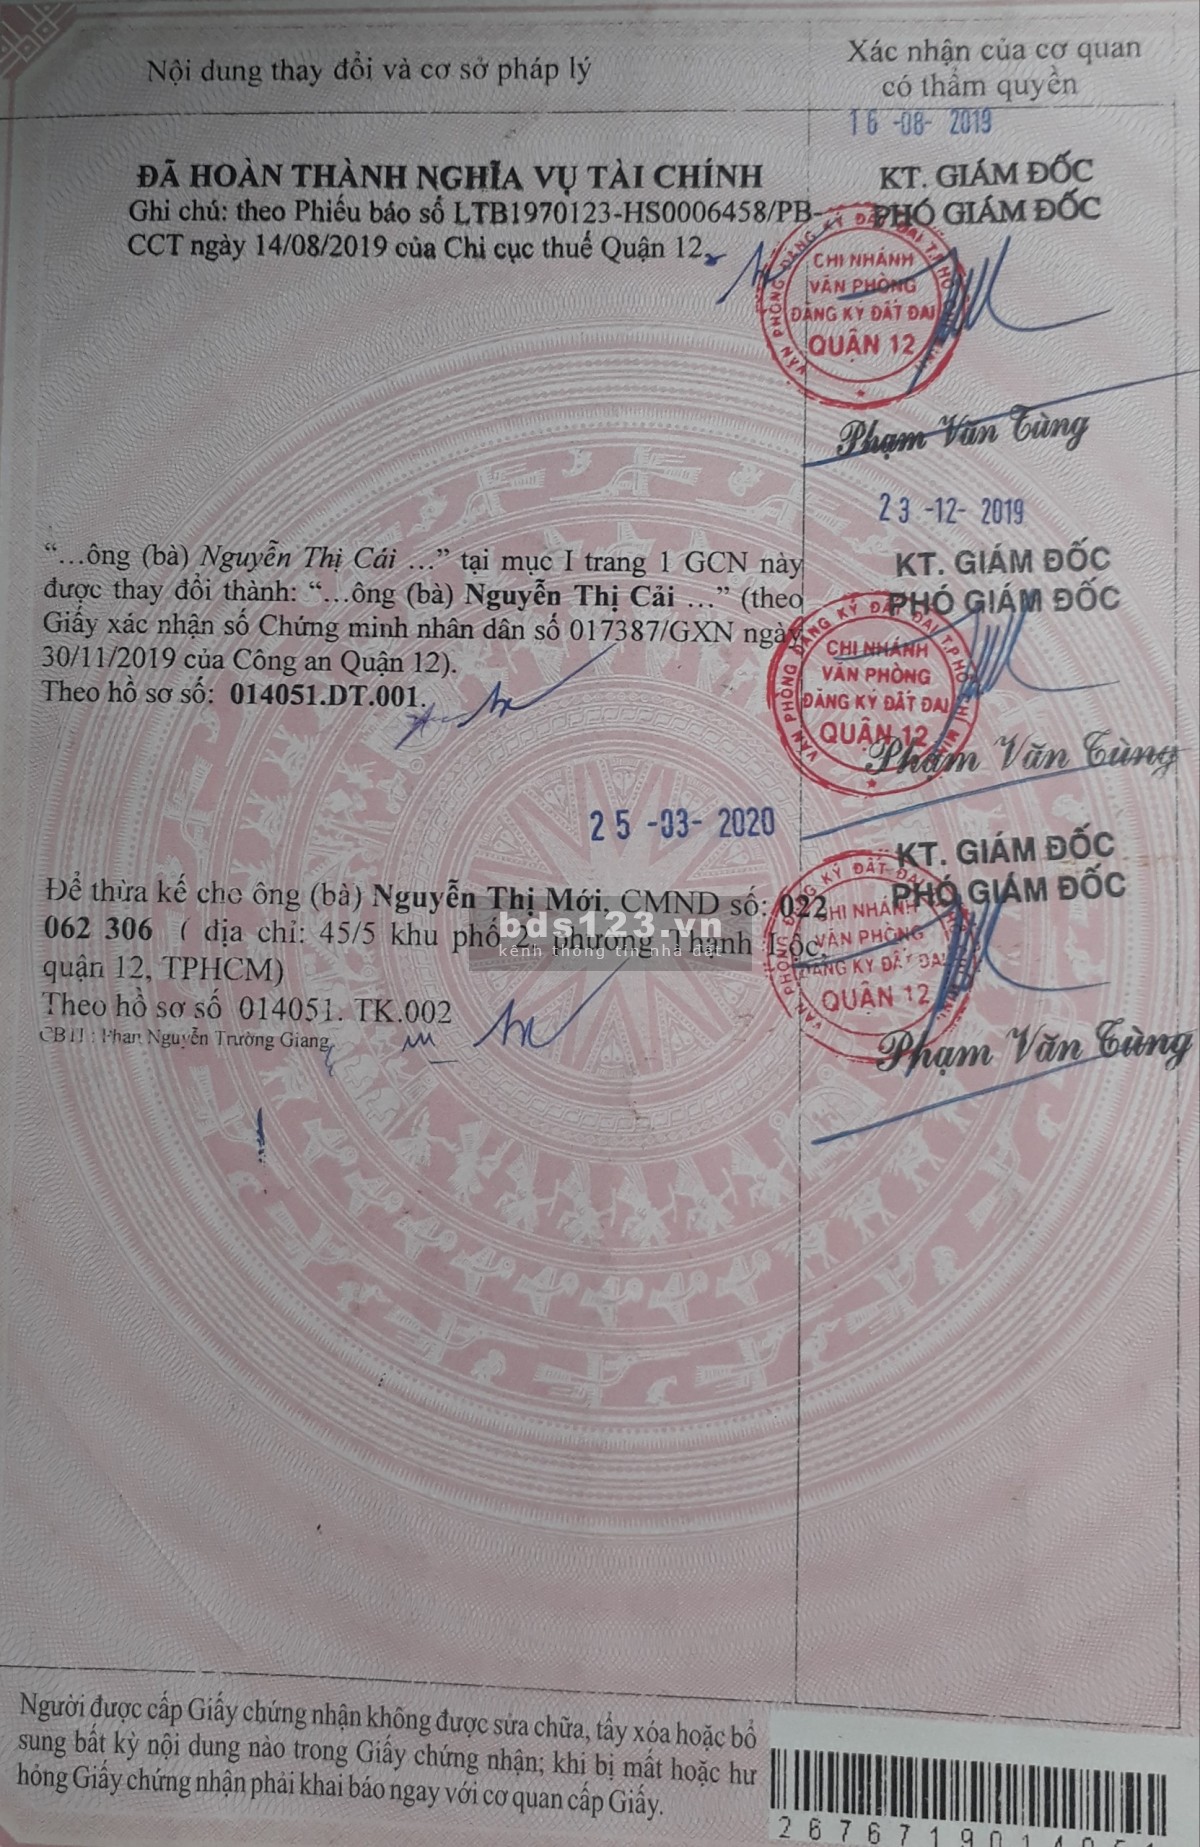 Nội dung thay đổi và cơ sở pháp lý
Xác nhận của cơ quan
có thẩm quyền
16 -08- 2019
ĐÃ HOÀN THÀNH NGHĨA VỤ TÀI CHÍNH
Ghi chú: theo Phiếu báo số LTB1970123-HS0006458/PB-
CCT ngày 14/08/2019 của Chi cục thuế Quận 12
KT. GIÁM ĐỐC
PHÓ GIÁM ĐỐC
VĂN PHÒNG ĐĂNG KÝ ĐẤT ĐAI T.PHỐ
CHI NHÁNH
VĂN PHÒNG
ĐĂNG KÝ ĐẤT ĐAI
QUẬN 12
Phạm Văn Tùng
23 -12- 2019
“...ông (bà) Nguyễn Thị Cái ...” tại mục I trang 1 GCN này
được thay đổi thành: “...ông (bà) Nguyễn Thị Cải ...” (theo
Giấy xác nhận số Chứng minh nhân dân số 017387/GXN ngày
30/11/2019 của Công an Quận 12).
Theo hồ sơ số: 014051.DT.001.
KT. GIÁM ĐỐC
PHÓ GIÁM ĐỐC
VĂN PHÒNG ĐĂNG KÝ ĐẤT ĐAI T.PHỐ
CHI NHÁNH
VĂN PHÒNG
ĐĂNG KÝ ĐẤT ĐAI
QUẬN 12
Phạm Văn Tùng
25 -03- 2020
Để thừa kế cho ông (bà) Nguyễn Thị Mới, CMND số: 022
062 306 ( địa chỉ: 45/5 khu phố 2, phường Thạnh Lộc,
quận 12, TPHCM)
Theo hồ sơ số 014051. TK.002
CBTL: Phan Nguyễn Trường Giang
bds123.vn
kênh thông tin nhà đất
KT. GIÁM ĐỐC
PHÓ GIÁM ĐỐC
CHI NHÁNH
VĂN PHÒNG
ĐĂNG KÝ ĐẤT ĐAI
QUẬN 12
Phạm Văn Tùng
Người được cấp Giấy chứng nhận không được sửa chữa, tẩy xóa hoặc bổ
sung bất kỳ nội dung nào trong Giấy chứng nhận; khi bị mất hoặc hư
hỏng Giấy chứng nhận phải khai báo ngay với cơ quan cấp Giấy.